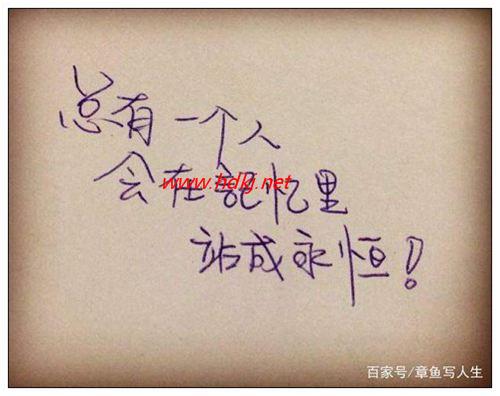 总有一个人
会在記忆里
www.hdkj.net
站成永恒！
百家号/章鱼写人生